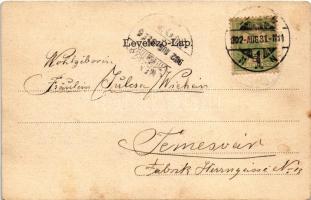 Levelező-Lap.
902 AUG 31
Wohlgeboren
Fräulein Julcsa
Temesvár
Fabrik Herrngasse No 13